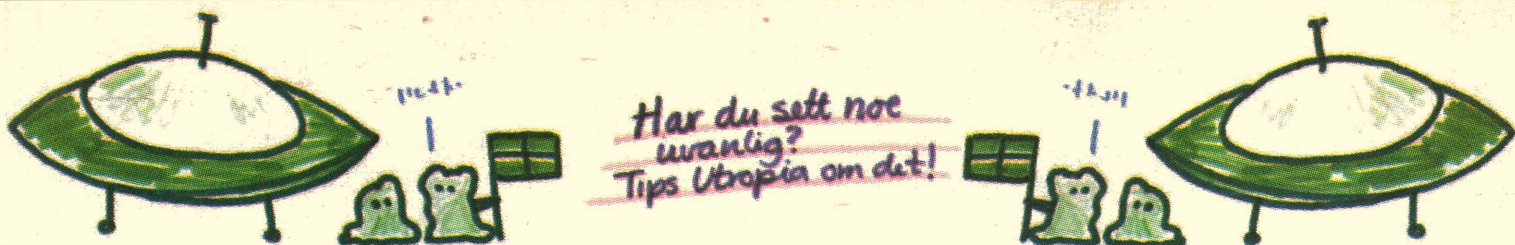 Har du sett noe
uvanlig?
Tips Utropia om det!